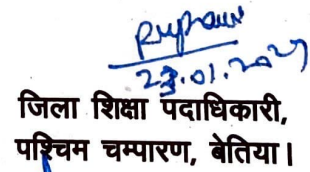 23.01.2027
जिला शिक्षा पदाधिकारी,
पश्चिम चम्पारण, बेतिया।